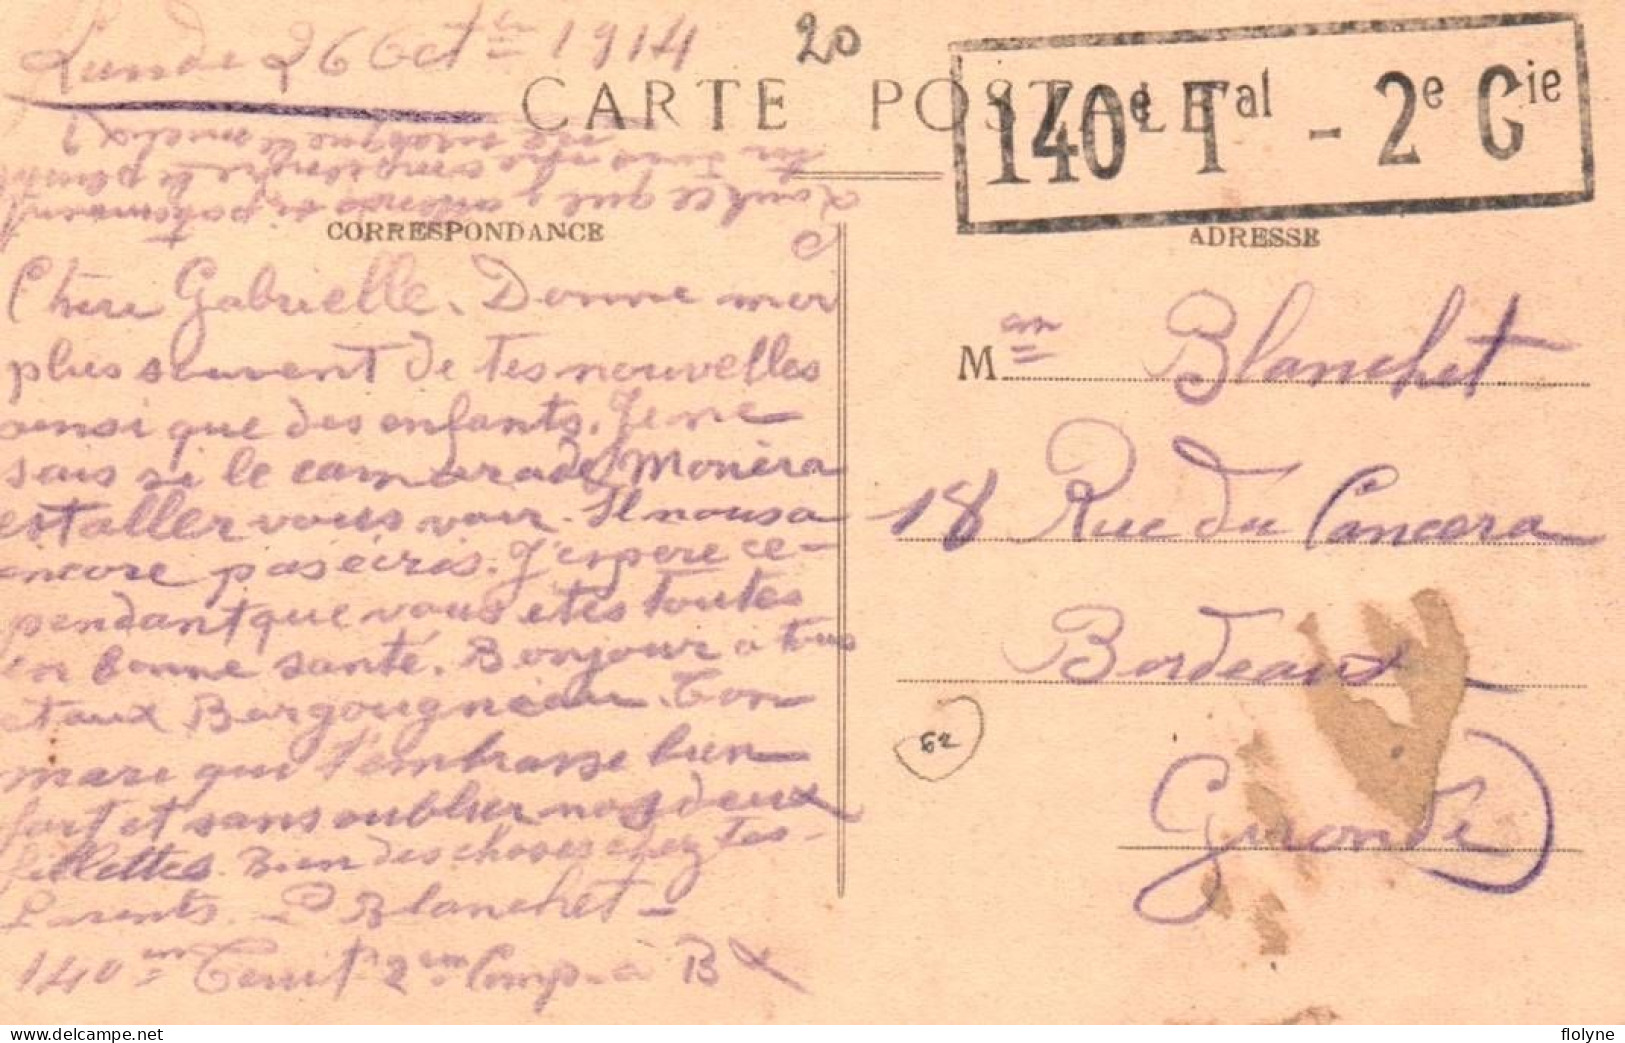 Lundi 26 Octbre 1914
20
CARTE POSTALE
140e Tal - 2e Cie
tu vois
ce que j'attends
CORRESPONDANCE
ADRESSE
Chère Gabrielle. Donne moi
plus souvent de tes nouvelles
ainsi que des enfants. Je ne
sais si le camarade Monéra
est aller vous voir. Il nous a
encore pas écris. J'espère ce-
pendant que vous etes toutes
en bonne santé. Bonjour a tous
et aux Bargougneau. Ton
mari qui t'embrasse bien
fort et sans oublier nos deux
fillettes. Bien des choses chez tes
Parents. P Blanchet
140em Territ 2em Comp. à Bx
Mme Blanchet
18 Rue du Cancera
Bordeaux
62
Gironde
flolyne